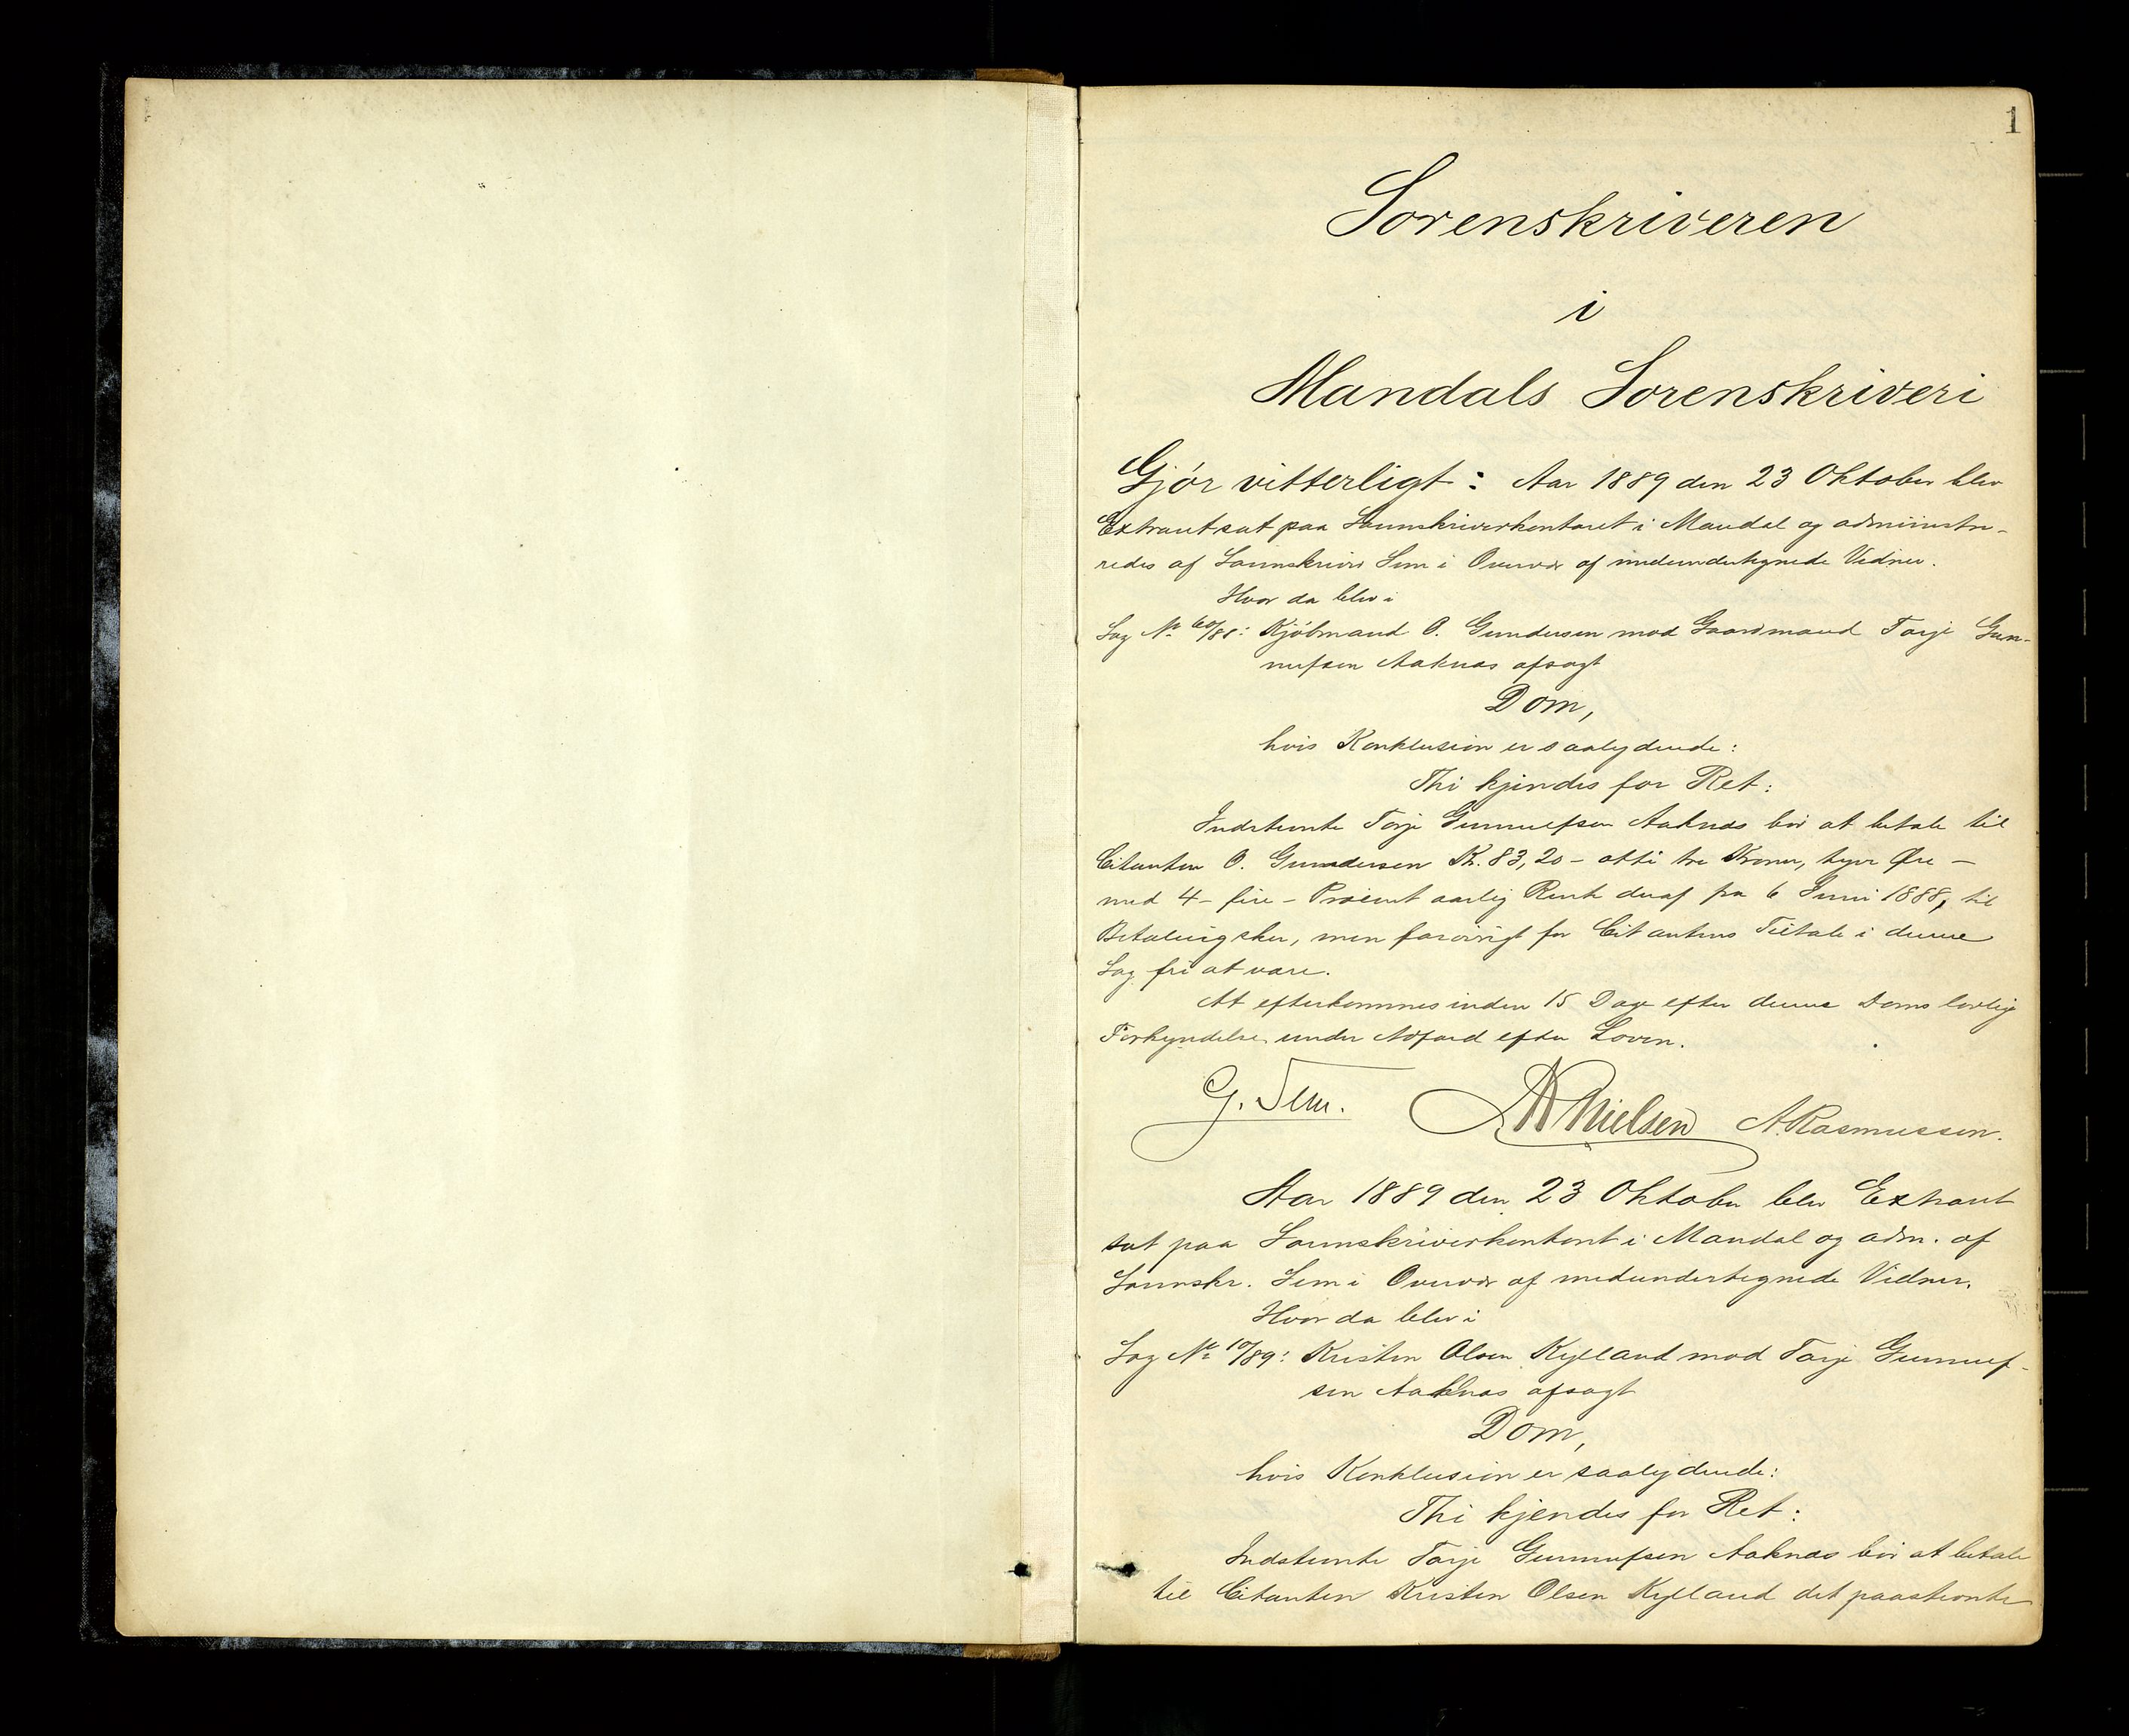 1
Sorenskriveren
i
Mandals Sorenskriveri
Gjör vitterligt: Aar 1889 den 23 Oktober blev
Extraret sat paa Sorenskriverkontoret i Mandal og administre-
redes af Sorenskriver Sem i Overvær af medundertegnede Vidner.
Hvor da blev i
Sag № 60/88: Kjöbmand O. Gundersen mod Gaardmand Tarje Gun-
nufsen Aaknes afsagt
Dom,
hvis Konklusion er saalydende:
Thi kjendes for Ret:
Indstevnte Tarje Gunnufsen Aaknes bör at betale til
Citanten O. Gundersen Kr. 83,20 – otti tre Kroner, tyve Øre –
med 4 – fire – Procent aarlig Rente deraf fra 6 Juni 1888, til
Betaling sker, men forövrigt for Citantens Tiltale i denne
Sag fri at være.
At efterkommes inden 15 Dage efter denne Doms lovlige
Forkyndelse under Adfærd efter Loven.
G. Sem. Nielsen A. Rasmussen.
Aar 1889 den 23 Oktober blev Extraret
sat paa Sorenskriverkontoret i Mandal og adm. af
Sorenskr. Sem i Overvær af medundertegnede Vidner.
Hvor da blev i
Sag № 10/89: Kristen Olsen Kylland mod Tarje Gunnuf-
sen Aaknes afsagt
Dom,
hvis Konklusion er saalydende:
Thi kjendes for Ret:
Indstevnte Tarje Gunnufsen Aaknes bör at betale
til Citanten Kristen Olsen Kylland det paastevnte